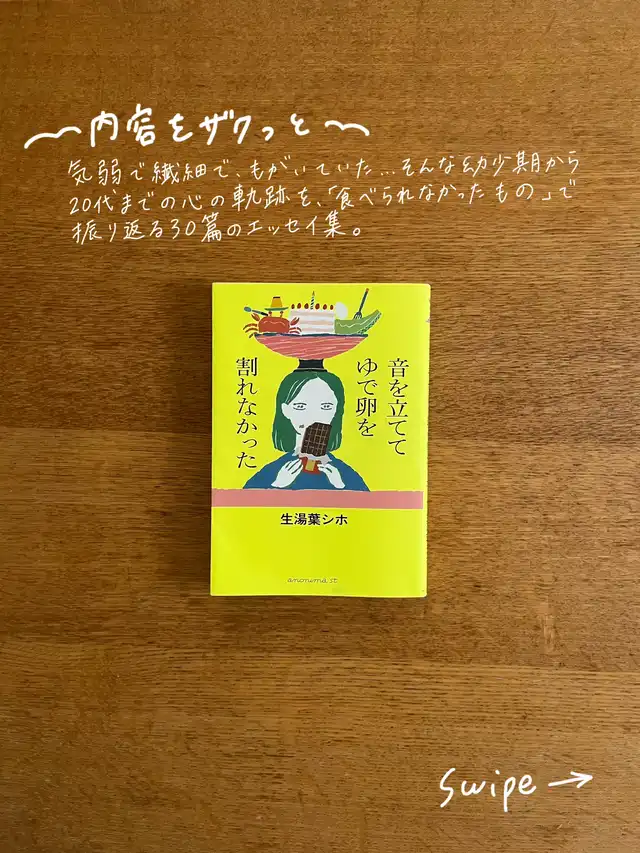 〜内容をザクっと〜
気弱で繊細で、もがいていた…そんな幼少期から
20代までの心の軌跡を、「食べられなかったもの」で
振り返る30篇のエッセイ集。
音を立てて
ゆで卵を
割れなかった
生湯葉シホ
anonima st
Swipe→